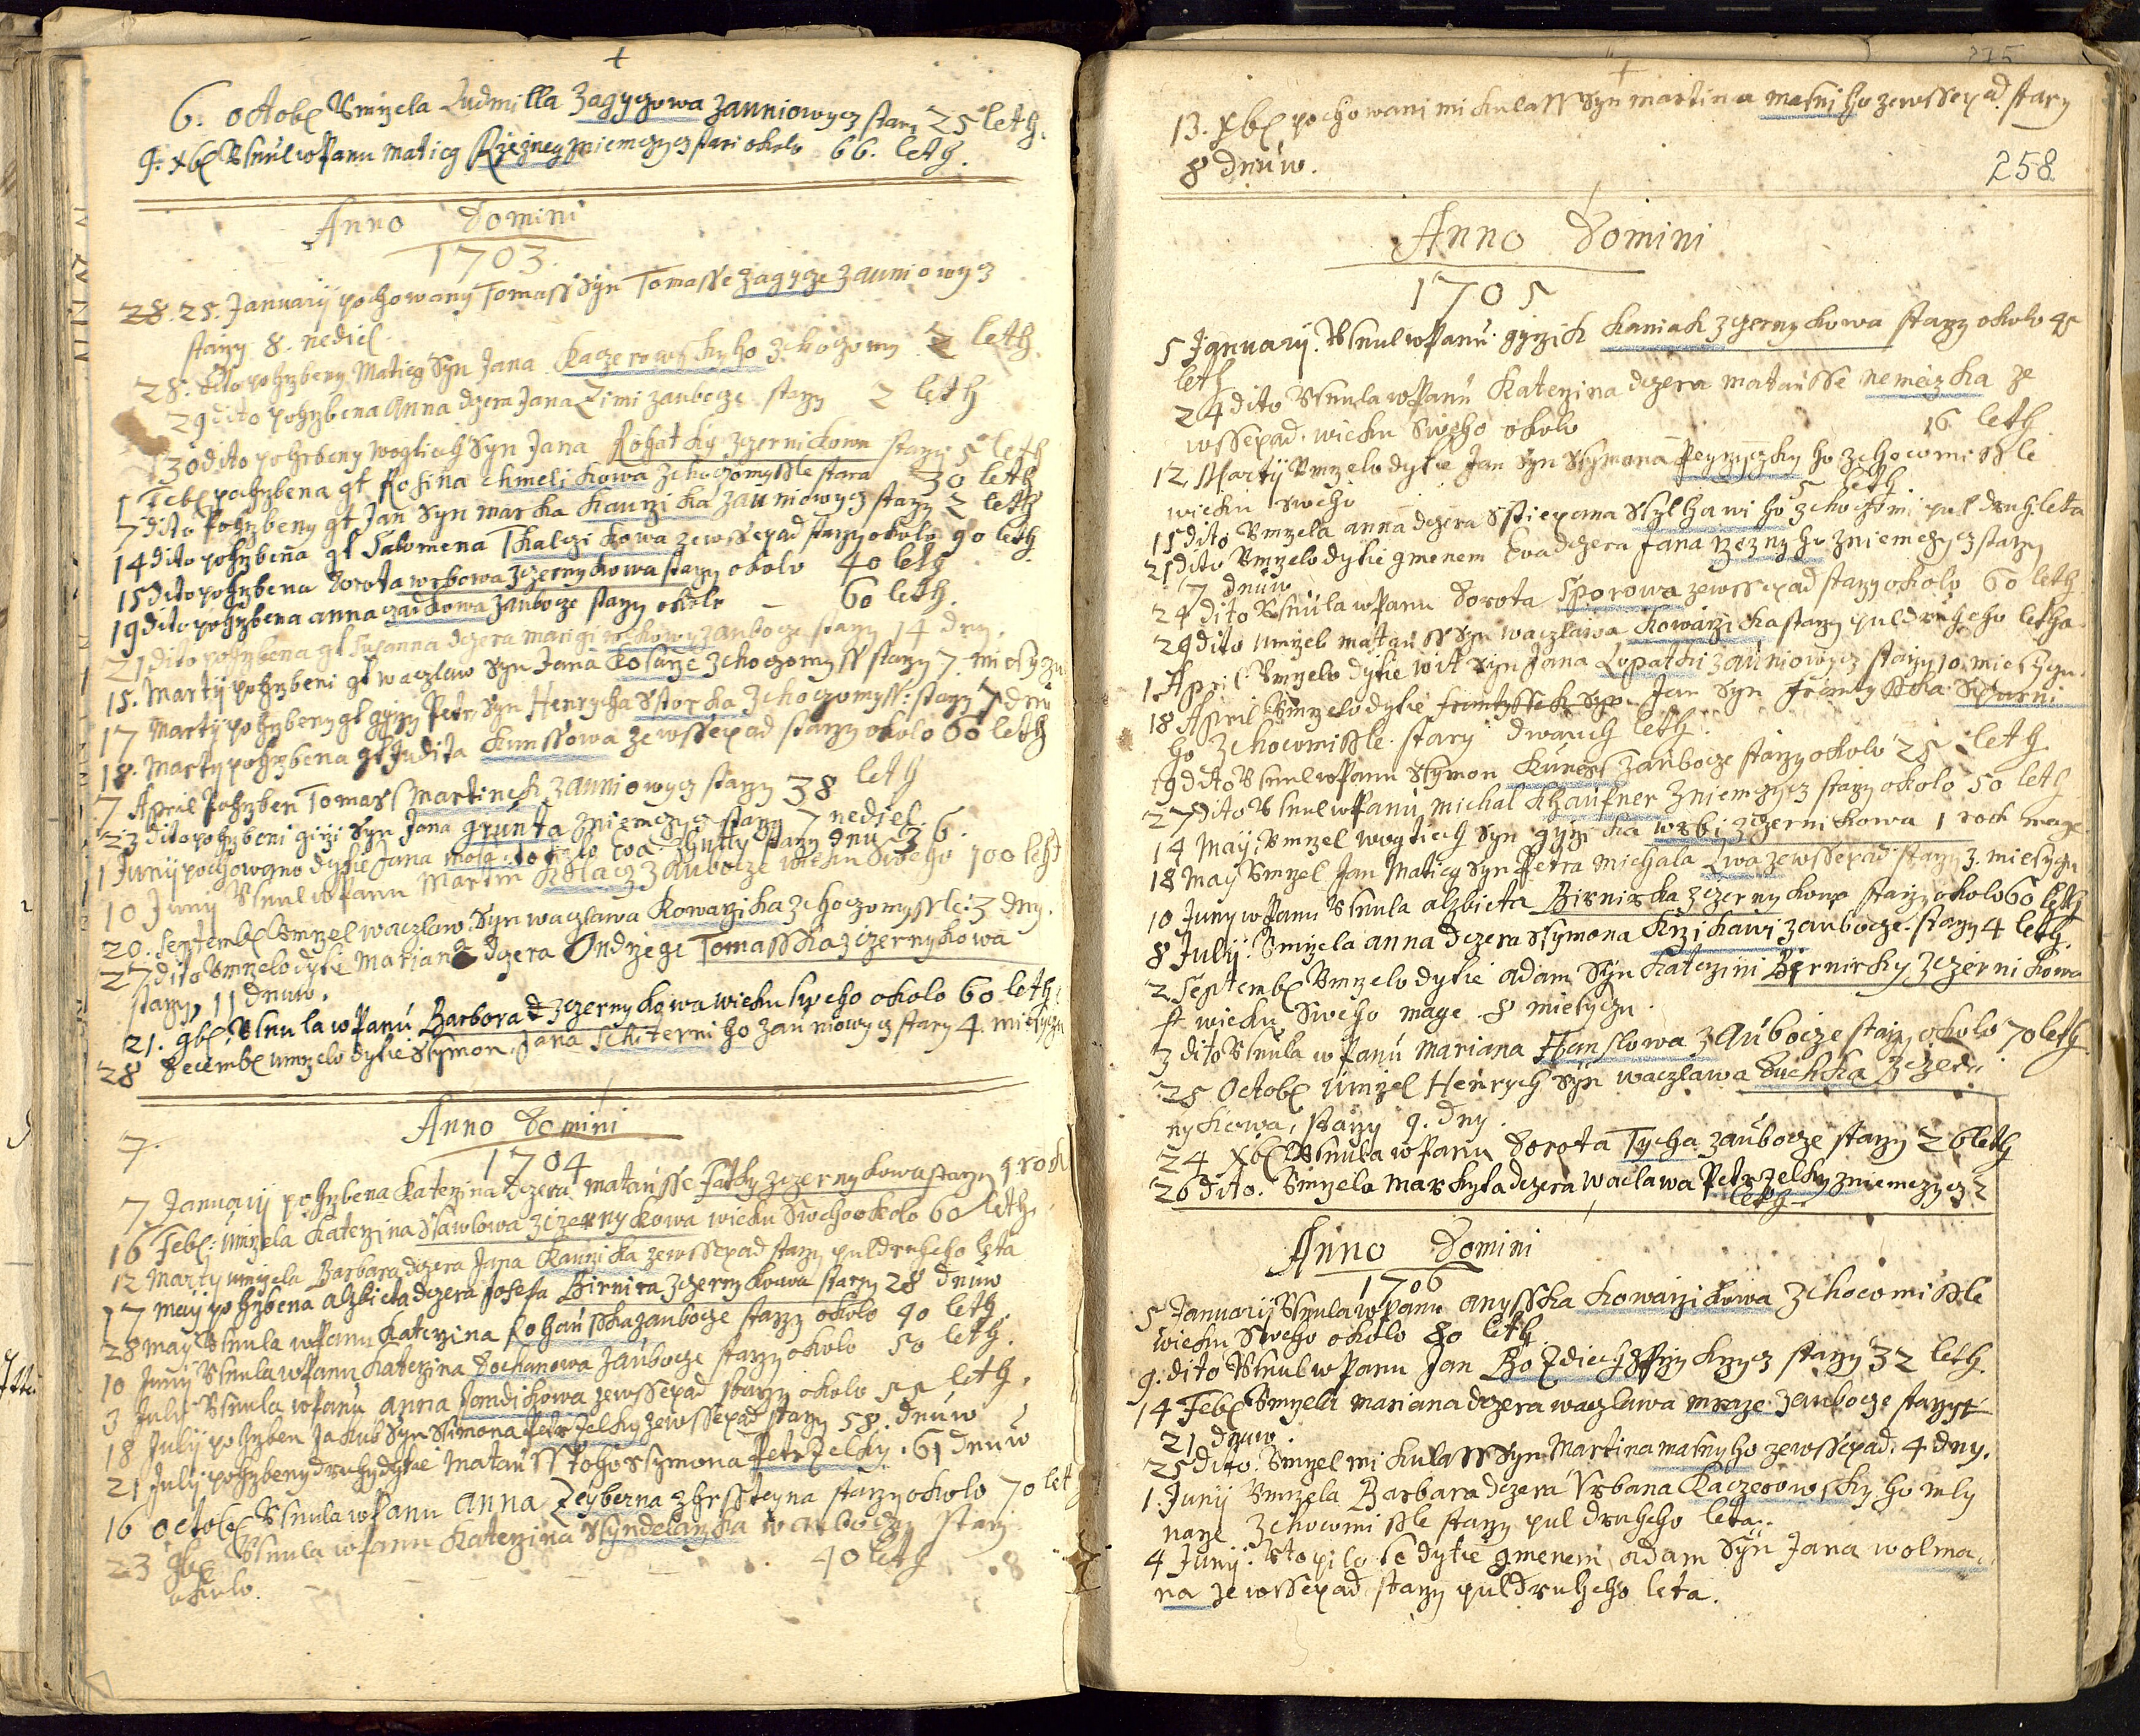 6. Octob Vmrzela Ludmilla Zagyczowa Zauniowycz stara 25 leth.
9. xb Vsnul w Panu Maticg Rzezneg zniemczycz stari okolo 66. leth.
Anno Domini
1703.
28. 25. January pochowany Tomass Syn Tomasse Zagycze Zauniowycz
starzy 8. nediel.
28. dito pohrzbeny Maticg Syn Jana Kaczerowskyho zchoczomy 2 leth.
29 dito pohrzbena Anna dczera Jana Zimi zauboczе starzy 2 leth
30 dito pohrbeny Wogtiech Syn Jana Rohatky zczernikowa starzy 5 leth
1 Feb pochrzbena gt Rosina Chmelikowa zchoczomyssle stara 30 leth
7 dito Pohrzbeny gt Jan Syn Marka Kaurzika zauniowycz starzy 2 leth
14 dito pohrzbena gt Salomena Tkalczikowa zewssepad starzy okolo 90 leth
15 dito pohrzbena Dorota wrbowa zczernykowa starzy okolo 40 leth
19 dito pohrzbena anna czadkowa zaubocze starzy okolo 60 leth.
21 dito pohrzbena gt Susanna dczera marigi zaubocze starzy 14 dny.
15. Marty pohrzbeni gt waczlaw Syn Jana Kosarze zchoczomyss starzy 7. miesycz
17 Marty pohrzbeny gt gyrzy Petr Syn Henrycha Storka zchoczomyss: starzy 7 dnu
18. Marty pohrzbena gt Judita Kunssowa zewssepad starzy okolo 60 leth
7 April Pohrzben Tomass Martinek zauniowycz starzy 38 leth
23 dito pohrzbeni girzi Syn Jana grunta zniemczycz starzy 7 nediel.
1 Juny pochowano dytie Jana starzy dnu 36.
10 Juny Vsnul w Panu Martin zaubocze wieku Sweho 100 leht
20. Septemb Vmrzel waczlaw Syn waczlawa Kowarzika zchoczomyssle: 3 dny.
27 dito Vmrzelo dytie Mariana dczera Ondrzege Tomasska zczernykowa
starzy, 11 dnuw.
21. 9b Vsnula w Panu Barbora zczernykowa wieku sweho okolo 60 leth
28 Decemb umrzelo dytie Symon Jana Schiterniho zauniowycz stary 4. miesycz
Anno Domini
7. 1704
7. January pohrzbena Katerzina dczera matausse Fatky zczernykowa starzy 1 rok
16 Feb: umrzela Katerzina Slawlowa zczernykowa wieku Sweho okolo 60 leth
12 Marty umrzela Barbara dczera Jana Kaurzika zewssepad starzy puldruheho leta
17 may pohrzbena alzbieta dczera Josefa Birnira zczernykowa starzy 28 dnuw
28 may Vsnula w Panu Katerzina Rohansska zaubocze starzy okolo 40 leth.
10 Juny Vsnula w Panu Katerzina Dochanowa zaubocze starzy okolo 50 leth.
3 July Vsnula w Panu anna Jandikowa zewssepad starzy okolo 55 leth.
18 July pohrzben Jakub Syn Simona Petrzelky zewssepad starzy 58. dnuw
21 July pohrzbeny druhy dytie Matauss toho Symona Petrzelky. 61 dnuw
16 Octob Vsnula w Panu Anna Zeyberna zhrssteyna starzy okolo 70 let
23 9b Vsnula w Panu Katerzina Syndelarzka w auboczy starj
okolo. 40 leth
13. xb pochowani mikulass Syn martina matniho zewssepad. stary
8 dnuw.
258
Anno Domini
1705
5 January. Vsnul w Panu. gyrzik Kaniak zczernykowa starzy okolo 45
leth
24 dito Vsnula w Panu Katerzina dczera matausse nemeczka ze
wssepad. wieku Sweho okolo 16 leth
12. Marty Vmrzelo dytie Jan Syn Symona Peyrzyczky ho zchocomissle
wieku Sweho 5 leth
15 dito Vmrzela anna dczera Sstiepana zchoczomi pul druh leta
21 dito Vmrzelo dytie gmenem Eva dczera Jana rzeznyho zniemczycz starzy
7 dnuw
24 dito Vsnula w Panu Dorota Sporowa zewssepad starzy okolo 60 leth
29 dito Umrzel matauss Syn waczlawa Kowarzika starzy puldruheho letha
1. April Vmrzelo dytie wit Syn Jana Lopatki zauniowycz starzy 10 miesyczu.
18 April Vmrzelo dytie frantyssek Syn Jan Syn frantysska
ho zchocomissle. stary dwauch leth.
19 dito Vsnul w Panu Symon Kuness zaubocze starzy okolo 25 leth
27 dito Vsnul w Panu michal Khaufner zniemczycz starzy okolo 50 leth
14 May Vmrzel wogtiech Syn gyrzika wrbi zczernikowa 1 rok mage
18 May Vmrzel Jan Maticg Syn Petra michala Lwa zewssepad starzy 3. miesyczu
10 Juny w Panu Vsnula alzbieta Birnirka zczernykowa starzy okolo 60 leth
8 July. Vmrzela anna dczera Symona Krzikawi zaubocze. starzy 4 leth.
2 Septemb Vmrzelo dytie adam Syn Katerzini Birnirky zczernikowa
wieku Sweho mage 8 miesyczu.
3 dito Vsnula w Panu Mariana Hanslowa zaubocze starzy okolo 70 leth
25 Octob Umrzel Henrych Syn waczlawa Duchka zczer
nykowa, starzy 9. dny.
24 xb Vsnula w Panu Dorota Tycha zaubocze starzy 26 leth
26 dito. Vmrzela Markyta dczera Waclawa Petrzelky zniemczycz 2
leth
Anno Domini
1706
5 January Vsnula w Panu anysska Kowarzikowa zchocomissle
wieku Sweho okolo 80 leth
9. dito Vsnul w Panu Jan Bozdiech starzy 32 leth.
14 Feb Vmrzela Mariana dczera waczlawa mraze zaubocze starzy
21 dnuw.
25 dito. Vmrzel mikulass Syn Martina matnyho zewssepad. 4 dny.
1. Juny Vmrzela Barbara dczera Vrbana Kaczerowskyho mly
narze zchocomissle starzy pul druheho leta.
4 Juny. Vtopilo se dytie gmenem adam Syn Jana wolma
na zewssepad starzy puldruheho leta.